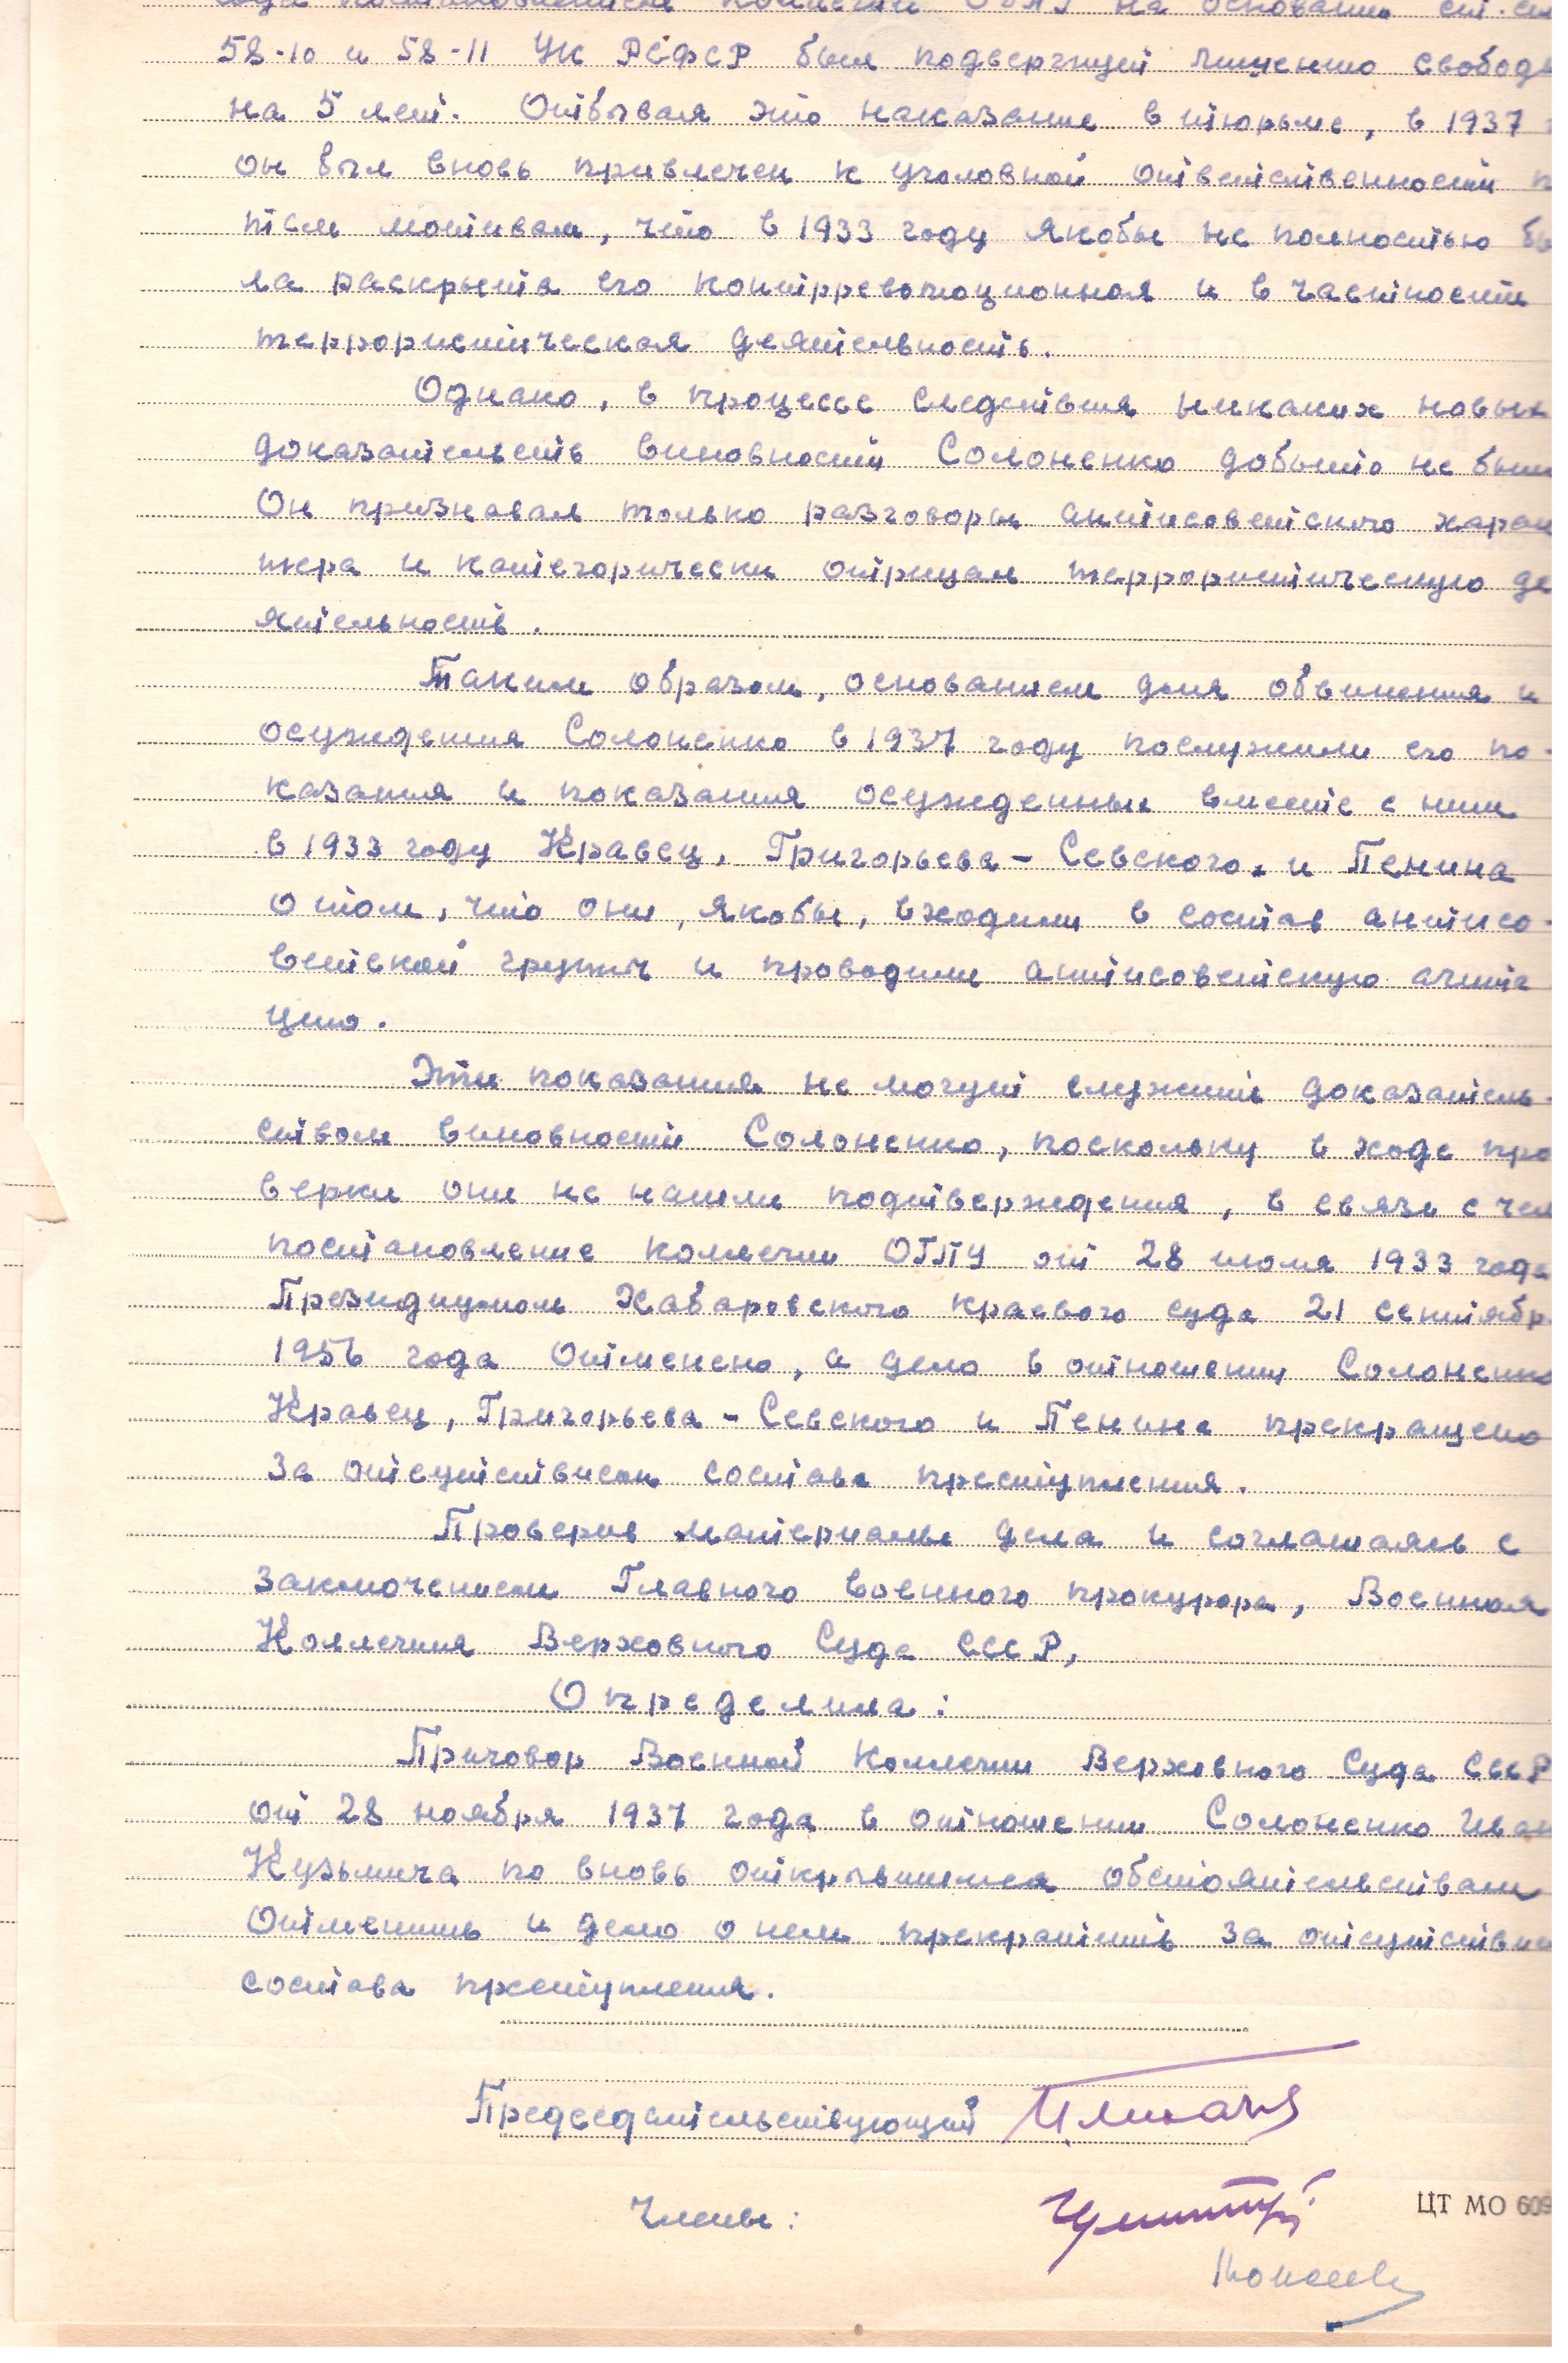 года постановлением коллегии ОГПУ на основании ст.ст
58-10 и 58-11 УК РСФСР был подвергнут лишению свобод
на 5 лет. Отбывая это наказание в тюрьме, в 1937
он был вновь привлечен к уголовной ответственности п
тем мотивам, что в 1933 году якобы не полностью бы
ла раскрыта его контрреволюционная и в частности
террористическая деятельность.
Однако, в процессе следствия никаких новых
доказательств виновности Солоненко добыто не был
Он признавал только разговоры антисоветского харак
тера и категорически отрицал террористическую де
ятельность.
Таким образом, основанием для обвинения и
осуждения Солоненко в 1937 году послужили его по-
казания и показания осужденных вместе с ним
в 1933 году Кравец, Григорьева-Севского, и Пенина
о том, что они, якобы, входили в состав антисо-
ветской группы и проводили антисоветскую агита
цию.
Эти показания не могут служить доказатель-
ством виновности Солоненко, поскольку в ходе про
верки они не нашли подтверждения, в связи с чем
постановление коллегии ОГПУ от 28 июля 1933 года
Президиумом Хабаровского краевого суда 21 сентябр
1956 года отменено, а дело в отношении Солоненко
Кравец, Григорьева-Севского и Пенина прекращено
за отсутствием состава преступления.
Проверив материалы дела и соглашаясь с
заключением Главного военного прокурора, Военная
Коллегия Верховного Суда СССР,
Определила:
Приговор Военной Коллегии Верховного Суда СССР
от 28 ноября 1937 года в отношении Солоненко Иван
Кузьмича по вновь открывшимся обстоятельствам
отменить и дело о нем прекратить за отсутстви
состава преступления.
Председательствующий
Члены:
ЦТ МО 609